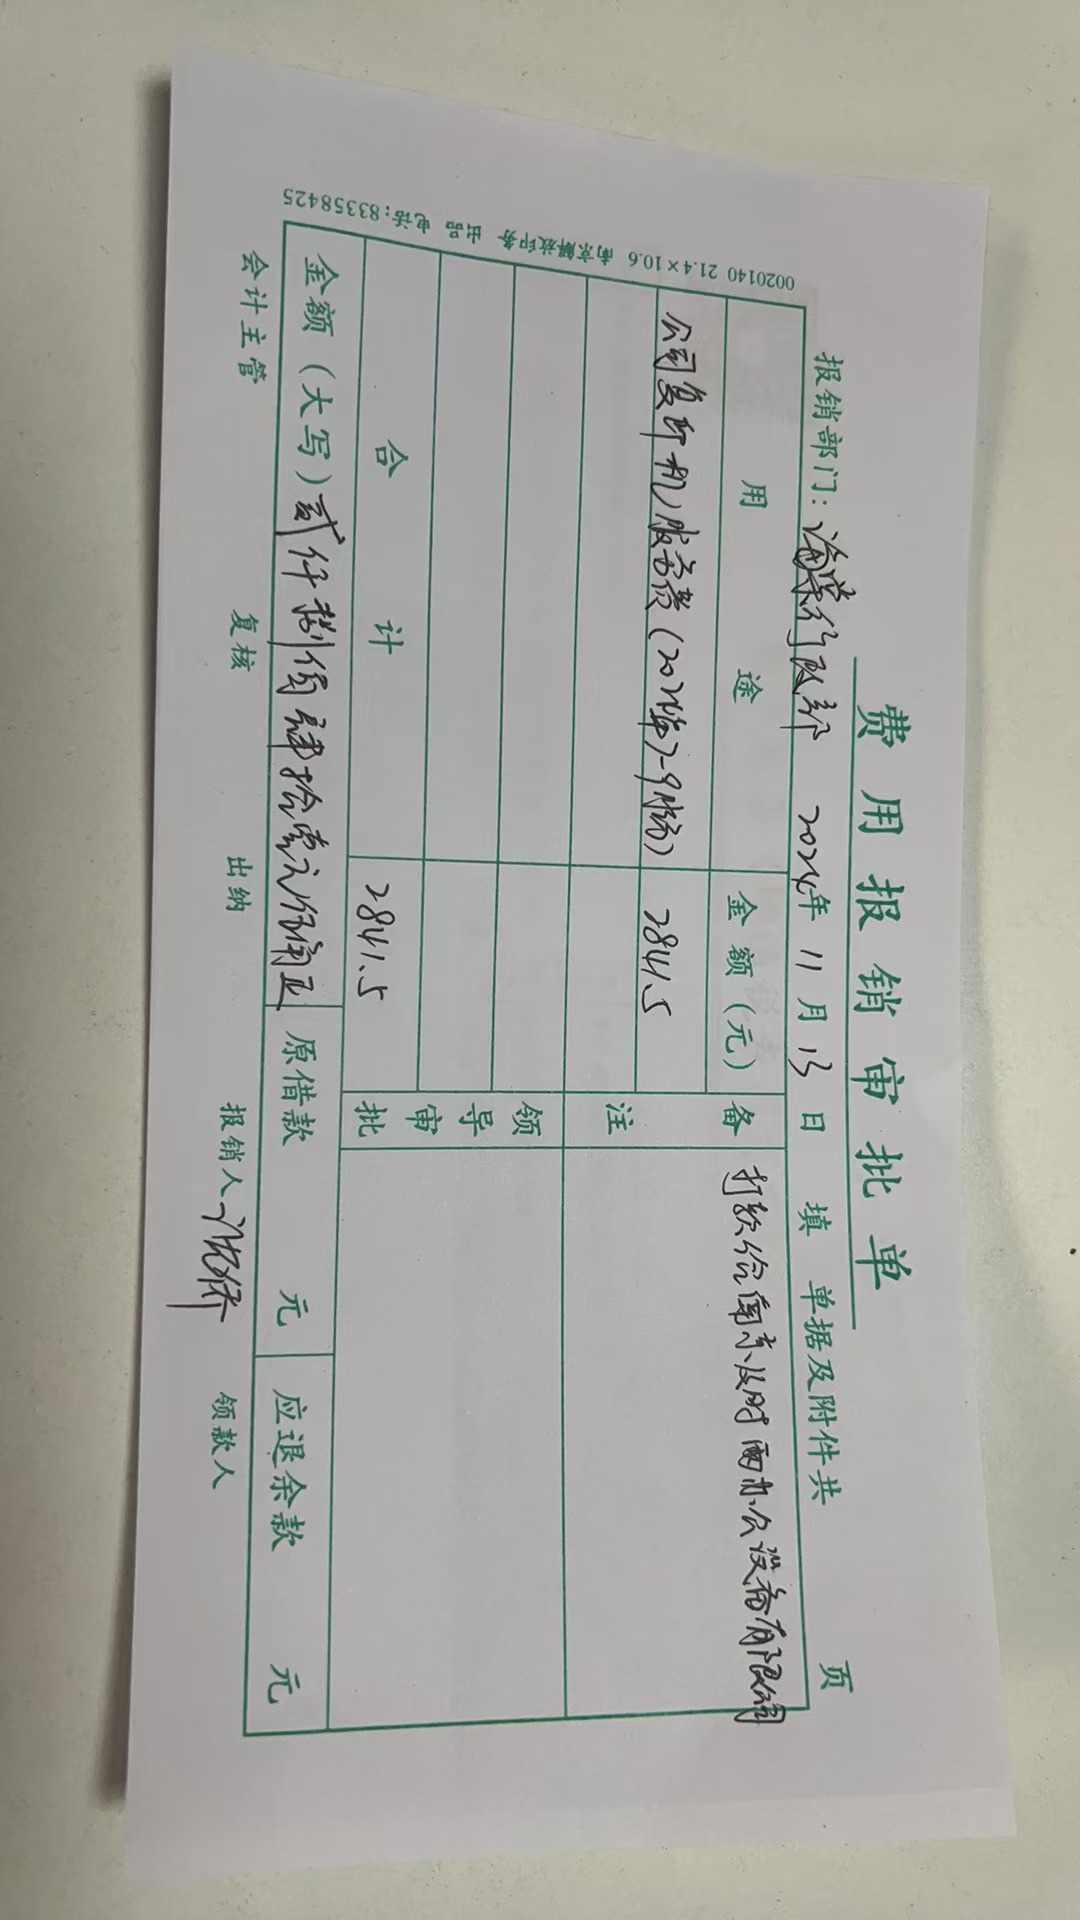 费用报销审批单
报销部门：海棠行政部 2024年11月13日 填 单据及附件共 页
用途 金额（元） 备注 打款给南京及时雨办公设备有限公司
公司复印机服务费（2024年7-9月份） 2841.5
领导审批
合计 2841.5
金额（大写）贰仟捌佰肆拾壹元伍角正 原借款 元 应退余款 元
会计主管 复核 出纳 报销人 领款人
0020140 21.4×10.6 南京解放印务 出品 电话：83358425